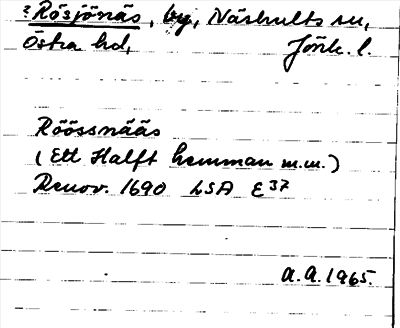 ? Rösjönäs, by, Näshults sn,
Östra hd, Jönk. l.
Röössnääs
(Ett Halft hemman m.m.)
Renov. 1690 LSA E37
A.A. 1965.